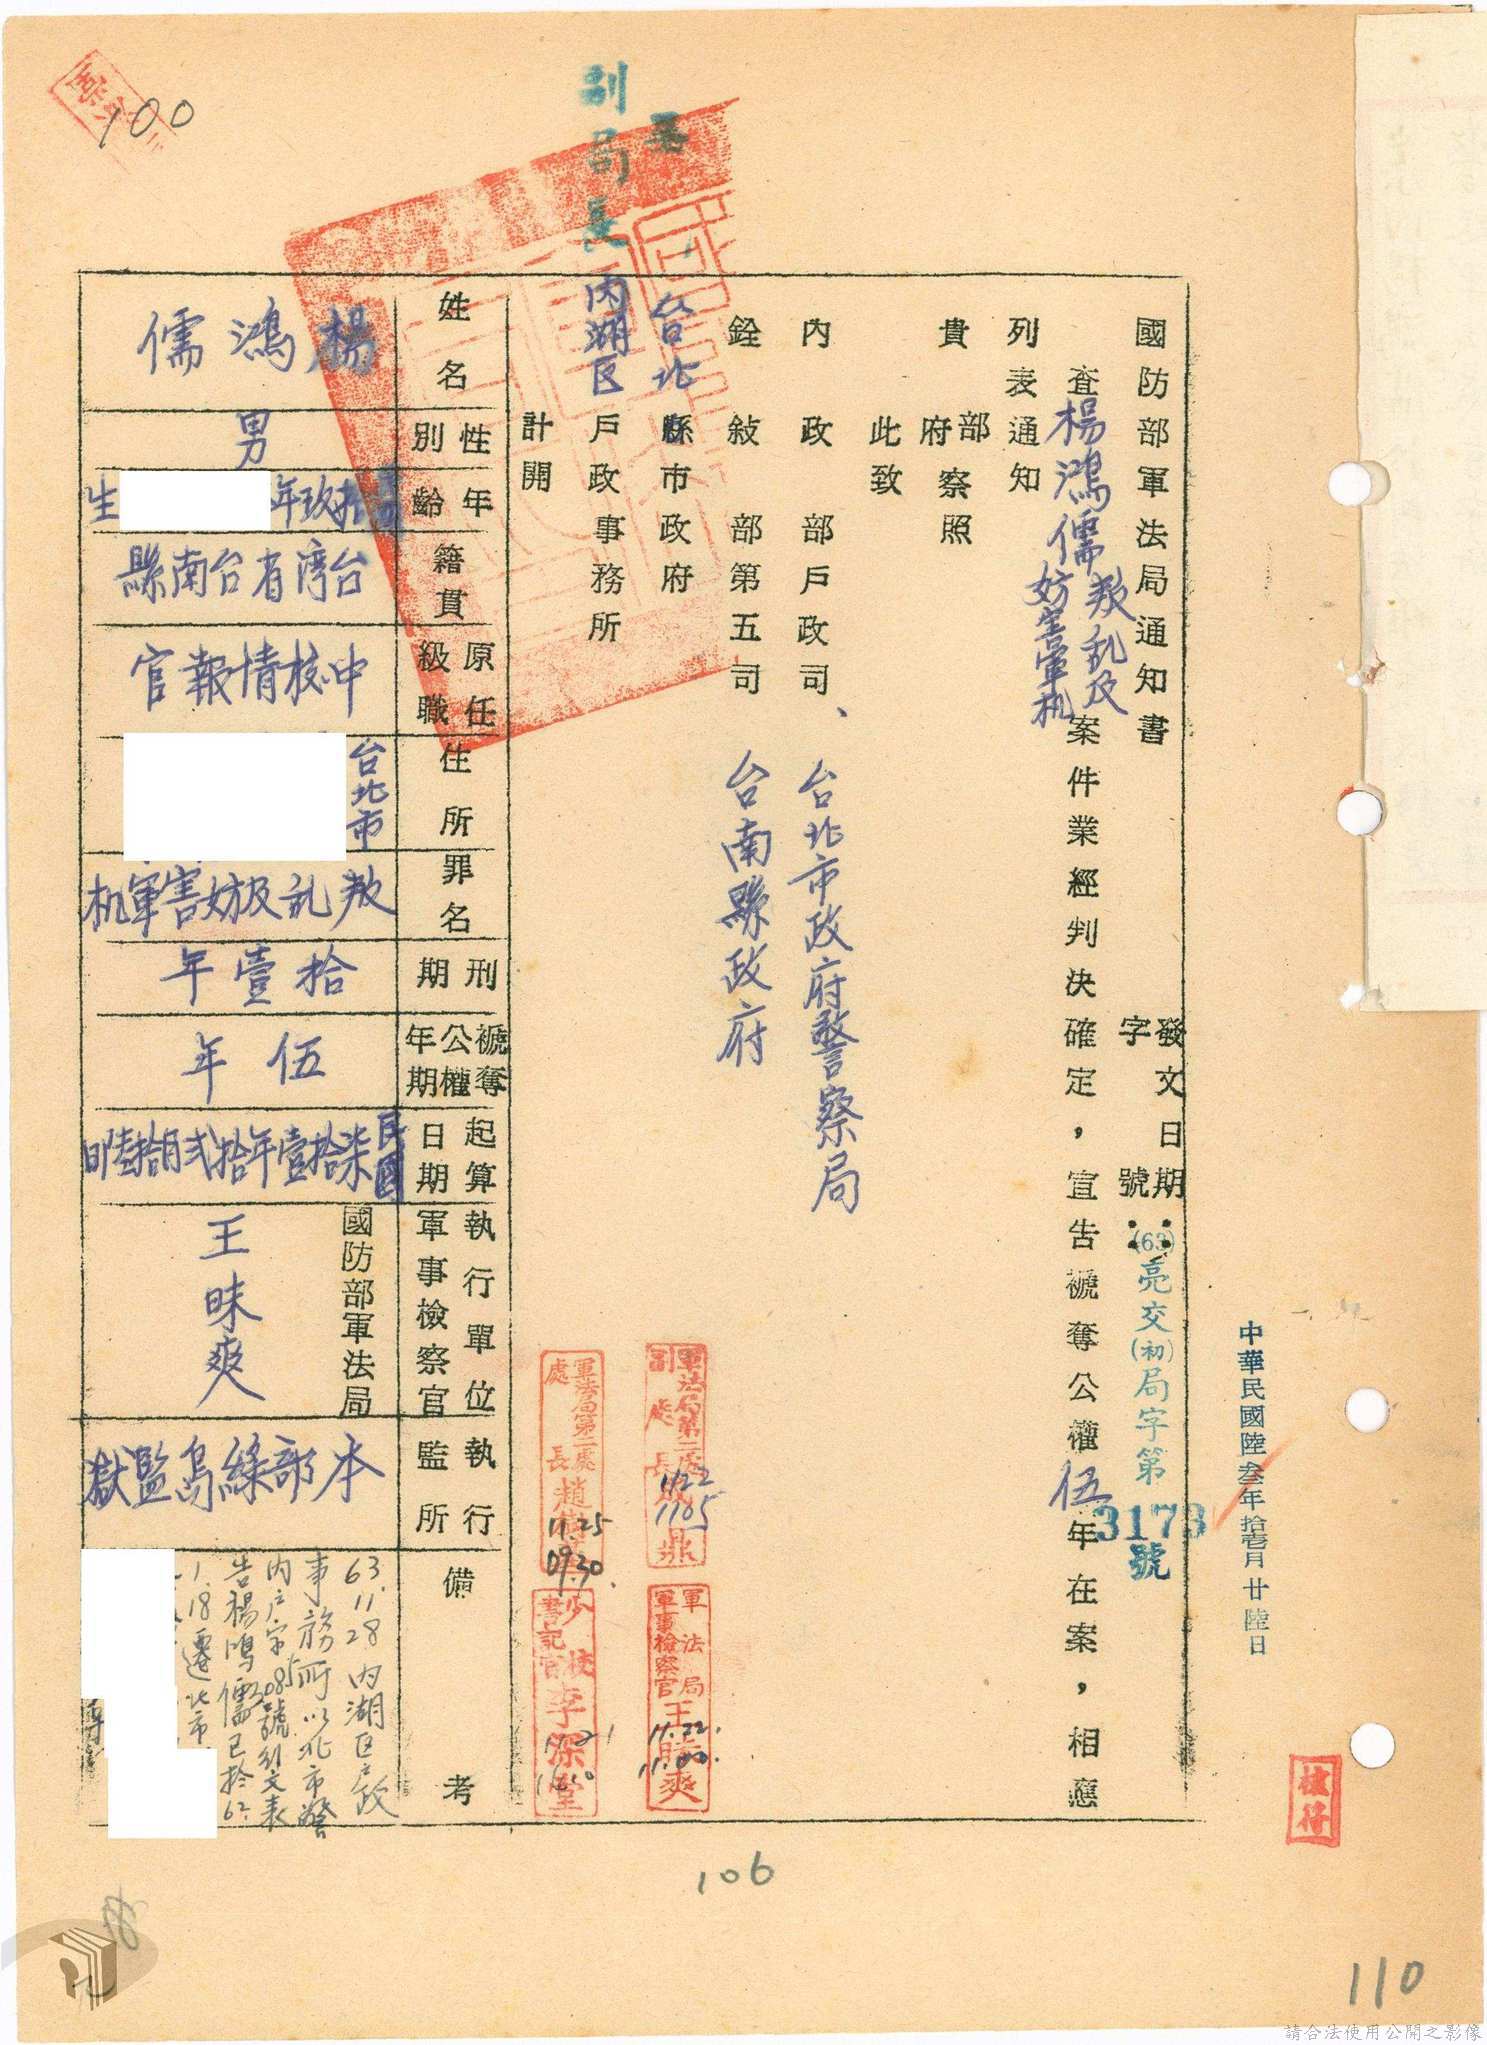 100
國防部軍法局通知書
發文日期：中華民國陸叁年拾壹月廿陸日
字號：(63)亮交(初)局字第3173號
查楊鴻儒叛乱及妨害軍机案件業經判決確定，宣告褫奪公權伍年在案，相應
列表通知
貴部府察照
此致
內政部戶政司、台北市政府警察局
銓敍部第五司 台南縣政府
台北縣市政府
內湖区戶政事務所
計開
姓名
楊鴻儒
性別
男
年齡
拾玖年
生
籍貫
台湾省台南縣
原任級職
中校情報官
住所
台北市
罪名
叛乱及妨害軍机
刑期
拾壹年
褫奪公權年期
伍年
起算日期
民國
柒拾壹年拾弍月拾陸日
執行單位軍事檢察官
國防部軍法局
王昧爽
執行監所
本部綠島監獄
備考
63.11.28內湖区戶政
事務所以北市警
內戶字3085號列文表
告楊鴻儒已於62.
1.18遷北市
軍法局第二處副處長
鼎
1122
1105
軍法局軍事檢察官王昧爽
11.22.
11.00.
軍法局第二處處長趙
11.25
09.30.
少校書記官李深堂
校對
106
110
請合法使用公開之影像